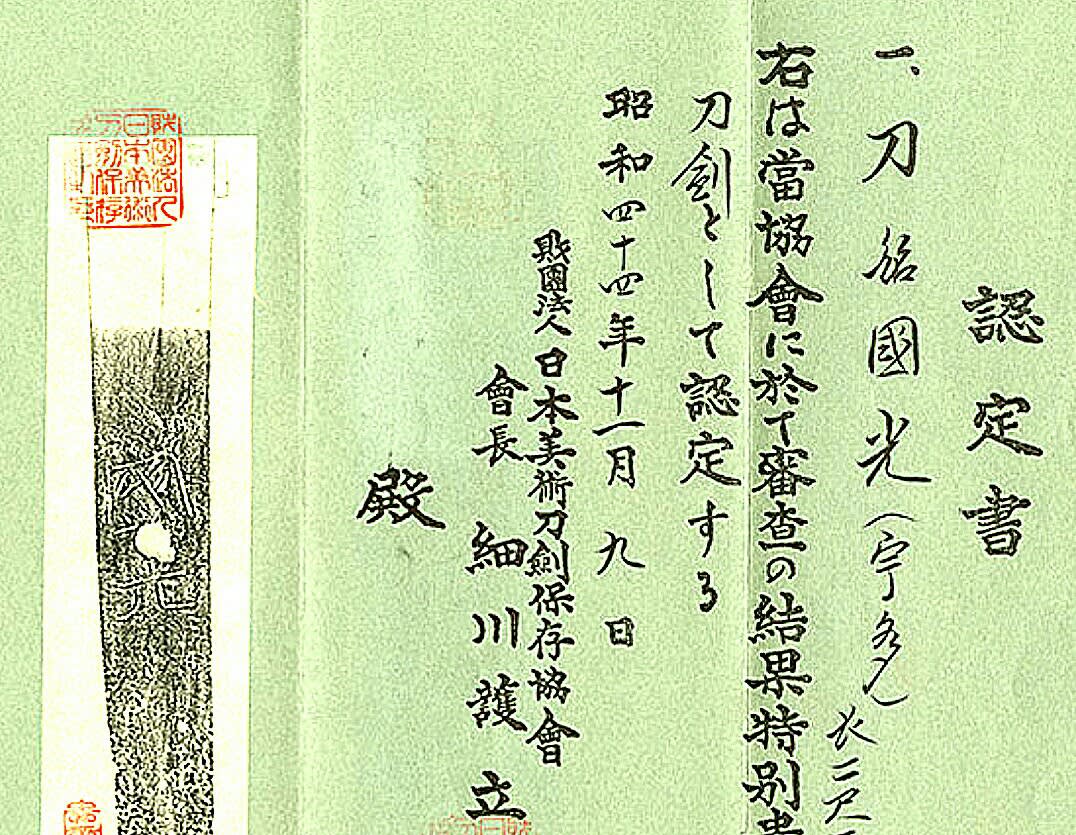 認定書
一、刀 銘 國光(宇多)
長二尺
右は當協會に於て審査の結果特別貴
刀劍として認定する
昭和四十四年十一月九日
財團法人日本美術刀劍保存協會
會長 細川護立
殿
國光